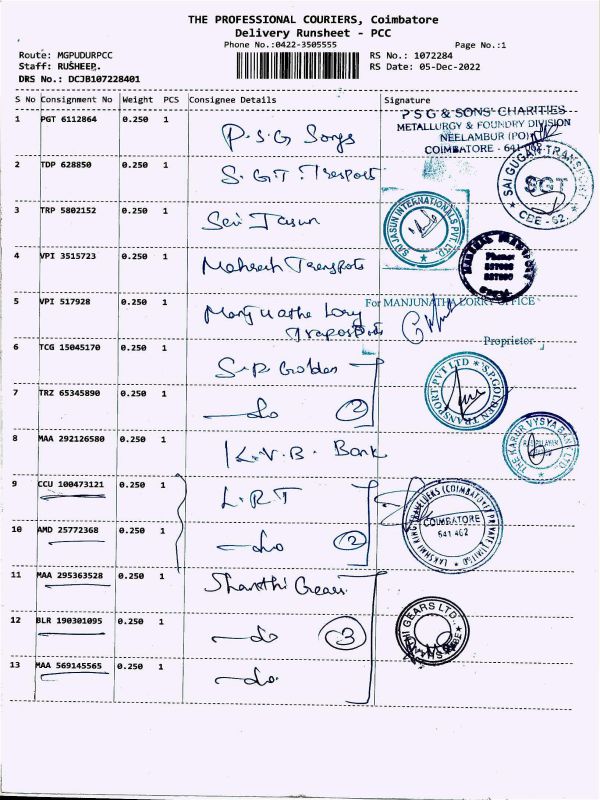 THE PROFESSIONAL COURIERS, Coimbatore
Delivery Runsheet - PCC
Phone No.:0422-3505555 Page No.:1
Route: MGPUDURPCC RS No.: 1072284
Staff: RUSHEEP. RS Date: 05-Dec-2022
DRS No.: DCJB107228401
S No Consignment No Weight PCS Consignee Details Signature
1 PGT 6112864 0.250 1 P.S.G Songs
P S G & SONS' CHARITIES
METALLURGY & FOUNDRY DIVISION
NEELAMBUR (PO)
COIMBATORE - 641 062
2 TDP 628850 0.250 1 S.G.T. Tresport
SAI GUGAN TRANSPORT
SGT
CBE - 62
3 TRP 5802152 0.250 1 Sri Jasun
SRI JASUN INTERNATIONALS PVT. LTD.
4 VPI 3515723 0.250 1 Mahesh Transpots
5 VPI 517928 0.250 1 Manjunatha Lory
Traposports
For MANJUNATHA LORRY OFFICE
Proprietor
6 TCG 15045170 0.250 1 S.P. Golden
S.P.GOLDEN TRANSPORT PVT LTD
7 TRZ 65345890 0.250 1 —do 2
8 MAA 292126580 0.250 1 K.V.B. Bank
THE KARUR VYSYA BANK LTD.
9 CCU 100473121 0.250 1 L.R.T
LAKSHMI RING TRAVELLERS (COIMBATORE) PRIVATE LIMITED
COIMBATORE
641 402
10 AMD 25772368 0.250 1 —do 2
11 MAA 295363528 0.250 1 Shanthi Gears
12 BLR 190301095 0.250 1 —do 3
GEARS LTD.
13 MAA 569145565 0.250 1 —do.